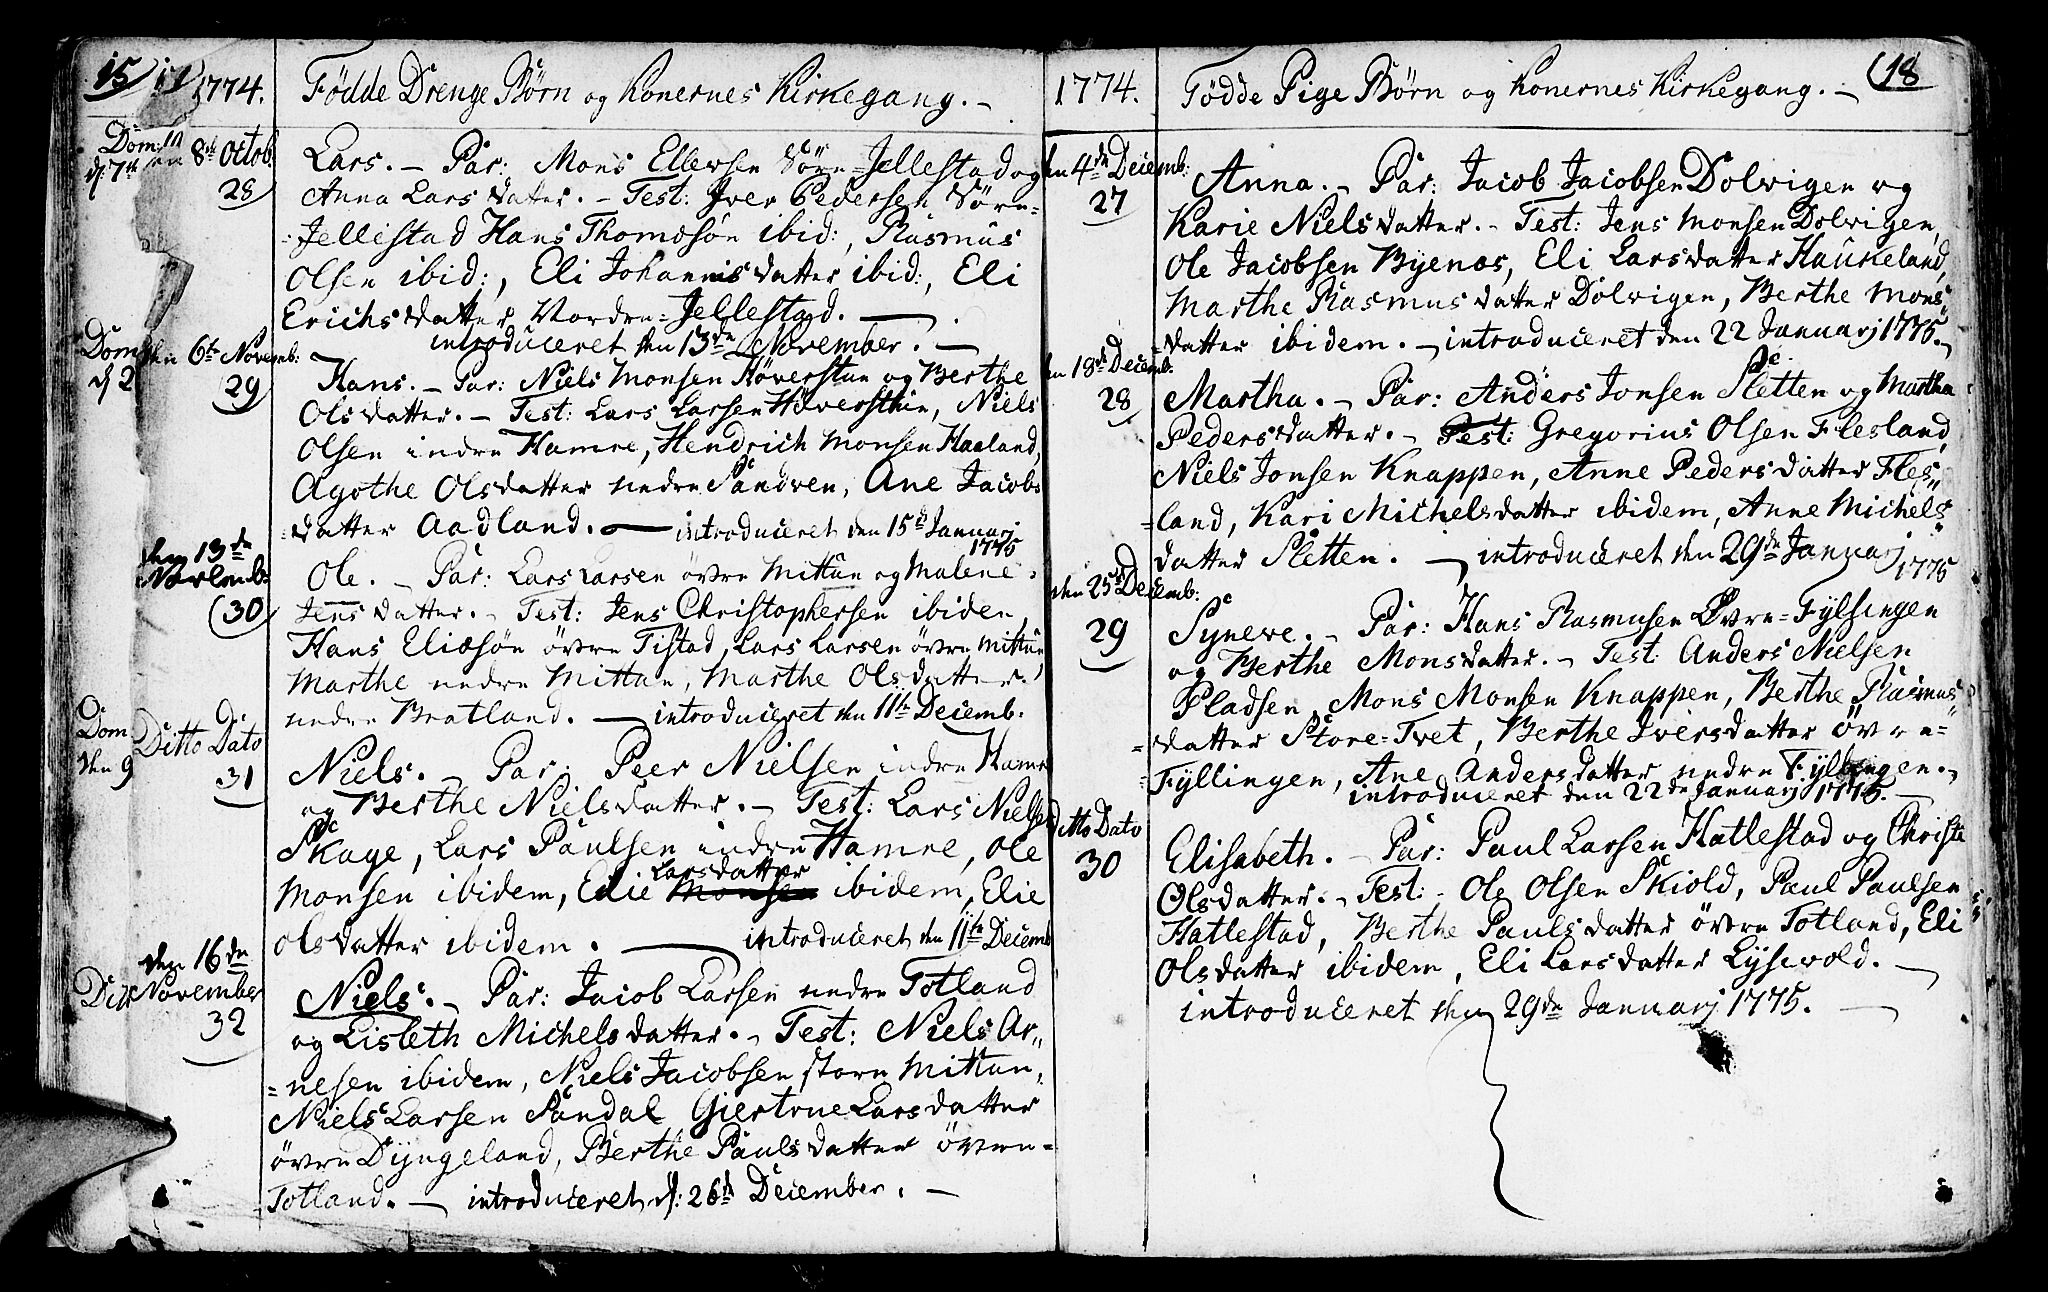 15 17 1774. Födde Drenge Börn og Konernes Kirkegang. –
Dom: 19
d. 7de
den 8de Octob:
28
Lars. – Par: Mons Ellevsen Sörn-Jellestad og
Anna Larsdatter. – Test: Iver Pedersen Sörn-
-Jellestad Hans Thomdsön ibid:, Rasmus
Olsen ibid:, Eli Johannisdatter ibid:, Eli
Erichsdatter Nordre-Jellestad. –
introduceret den 13de November. –
Dom
d. 2
den 6te Novemb:
29
Hans. – Par: Niels Monsen Höverstun og Berthe
Olsdatter. – Test: Lars Larsen Höversthun, Niels
Olsen indre Hamre, Hendrich Monsen Haaland,
Agothe Olsdatter nedre Sandven, Ane Jacobs
-datter Aadland. – introduceret den 15de Januarj
1775
den 13de
Novemb:
30
Ole. – Par: Lars Larsen övre Mittun og Malene
Jensdatter. – Test: Jens Christophersen ibidem,
Hans Eliæsön övre Tistad, Lars Larsen övre Mittun,
Marthe nedre Mittun, Marthe Olsdatter
nedre Bratland. – introduceret den 11te Decemb:
Dom
den 9
Ditto Dato
31
Niels. – Par: Peer Nielsen indre Hamre
og Berthe Nielsdatter. – Test: Lars Nielsen
Skage, Lars Paulsen indre Hamre, Ole
Larsdatter
Monsen ibidem, Elie Monsen ibidem, Elie
Olsdatter ibidem. – introduceret den 11te Decemb
den 16de
November
32
Niels. – Par: Jacob Larsen nedre Totland
og Lisbeth Michelsdatter. – Test: Niels Ar„
-nesen ibidem, Niels Jacobsen store Mittun,
Niels Larsen Sandal, Giertrue Larsdatter
övre Dyngeland, Berthe Paulsdatter övre-
-Totland. – introduceret d: 26de December. –
1774. Födde Pige Börn og Konernes Kirkegang. – 18
den 4de Decemb:
27
Anna. – Par: Jacob Jacobsen Dolvigen og
Karie Nielsdatter. – Test: Jens Monsen Dolvigen,
Ole Jacobsen Byenæs, Eli Larsdatter Haukeland,
Marthe Rasmusdatter Dolvigen, Berthe Mons„
-datter ibidem. – introduceret den 22 Januarj 1775. –
den 18de Decemb:
28
Martha. – Par: Anders Jonsen Sletten og Martha
Pedersdatter. – Test: Gregorius Olsen Flesland,
Niels Jonsen Knappen, Anne Pedersdatter Fles„
-land, Kari Michelsdatter ibidem, Anne Michels„
datter Sletten. – introduceret den 29de Januarj
1775
den 25de Decemb:
29
Synewe. – Par: Hans Rasmusen Övre-Fyllingen
og Berthe Monsdatter. – Test: Anders Nielsen
Pladsen, Mons Monsen Knappen, Berthe Rasmus„
-datter Store-Tvet, Berthe Iversdatter övre-
-Fyllingen, Ane Andersdatter nedre Fyllingen. –
introduceret den 22de Januarj 1775. –
ditto Dato
30
Elisabeth. – Par: Paul Larsen Hatlestad og Christi
Olsdatter. – Test: Ole Olsen Skiold, Paul Paulsen
Hatlestad, Berthe Paulsdatter övre Totland, Eli
Olsdatter ibidem, Eli Larsdatter Lysevold. –
introduceret den 29de Januarj 1775. –